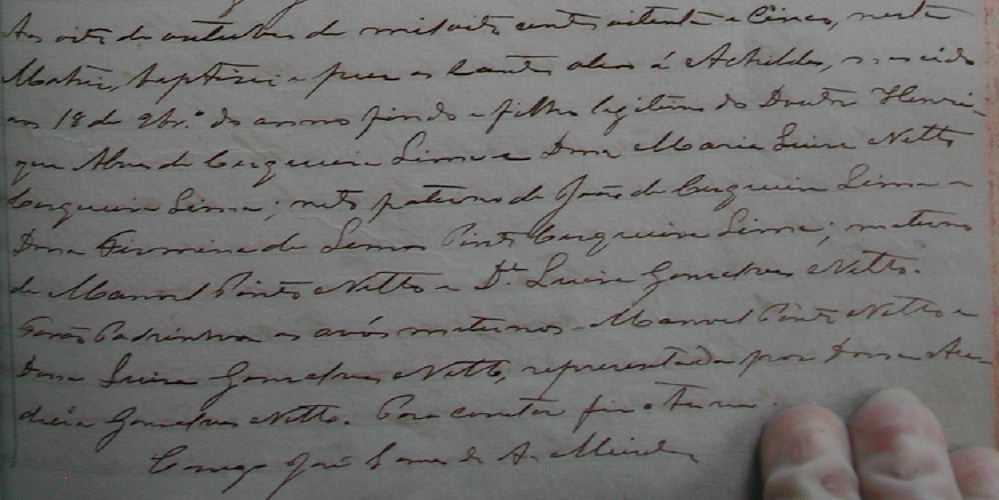 Aos oito de outubro de mil oito cento oitenta e cinco, nesta
Matriz, baptisei e puz os santos oleos á Achilles, nascido
aos 18 de 9br.º do anno findo e filho legitimo do Doutor Henri-
que Alves de Cerqueira Lima e Dona Maria Luisa Netto
Cerqueira Lima; neto paterno de João de Cerqueira Lima e
Dona Firmina de Pinto Cerqueira Lima; materno
de Manoel Pinto Netto e D.ª Luisa Gonçalves Netto.
Forão Padrinhos os avós maternos - Manoel Pinto Netto e
Dona Luisa Gonçalves Netto, representada por Dona
Gonçalves Netto. Para constar fiz o termo.
Conego José de